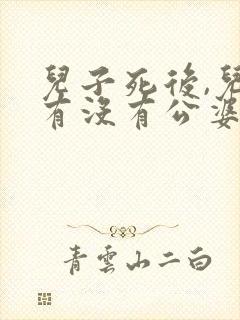 兒子死後,兒
有沒有公婆
青雲山二白